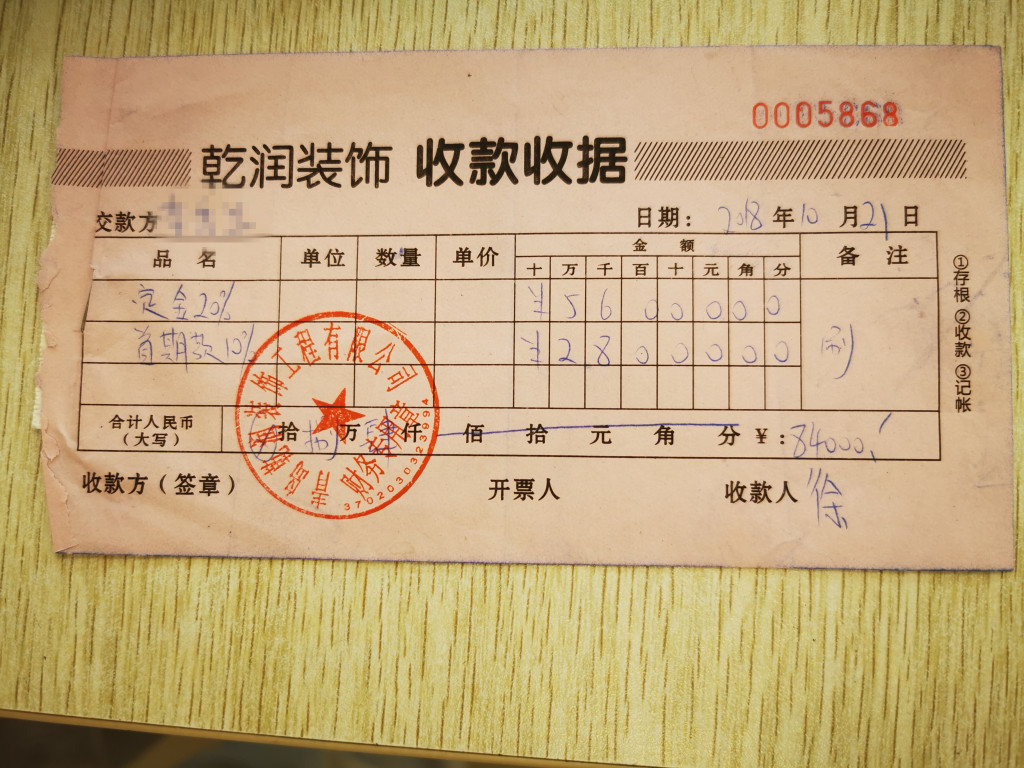 0005868
乾润装饰 收款收据
交款方 日期: 2018 年 10 月 21 日
品名 单位 数量 单价 金额 备注
十 万 千 百 十 元 角 分
定金20% ¥ 5 6 0 0 0 0 0
首期款10% ¥ 2 8 0 0 0 0 0 刷
合计人民币(大写) 拾 捌 万 肆 仟 佰 拾 元 角 分 ¥: 84000
收款方(签章) 开票人 收款人 徐
①存根 ②收款 ③记帐
青岛乾润装饰工程有限公司
财务专用章
3702030323994